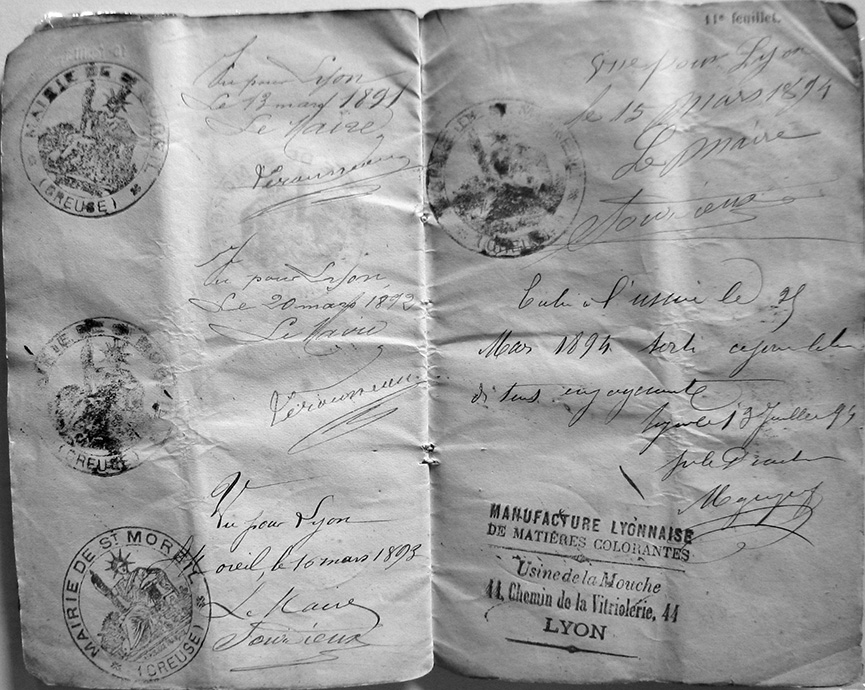 MAIRIE DE ST MOREIL
(CREUSE)
Vu pour Lyon
Le 13 mars 1891
Le Maire
Vérousseau
MAIRIE DE ST MOREIL
(CREUSE)
Vu pour Lyon
Le 20 mars 1892
Le Maire
Vérousseau
MAIRIE DE ST MOREIL
(CREUSE)
Vu pour Lyon
St Moreil, le 10 mars 1893
Le Maire
Tourieux
11e feuillet.
Vue pour Lyon
le 15 Mars 1894
Le Maire
Tourieux
(CREUSE)
à l'usine le 25
Mars 1894 sorti ce jour libre
de tous engagements
Lyon le 13 Juillet 94
MANUFACTURE LYONNAISE
DE MATIÈRES COLORANTES
Usine de la Mouche
44, Chemin de la Vitriolerie, 44
LYON